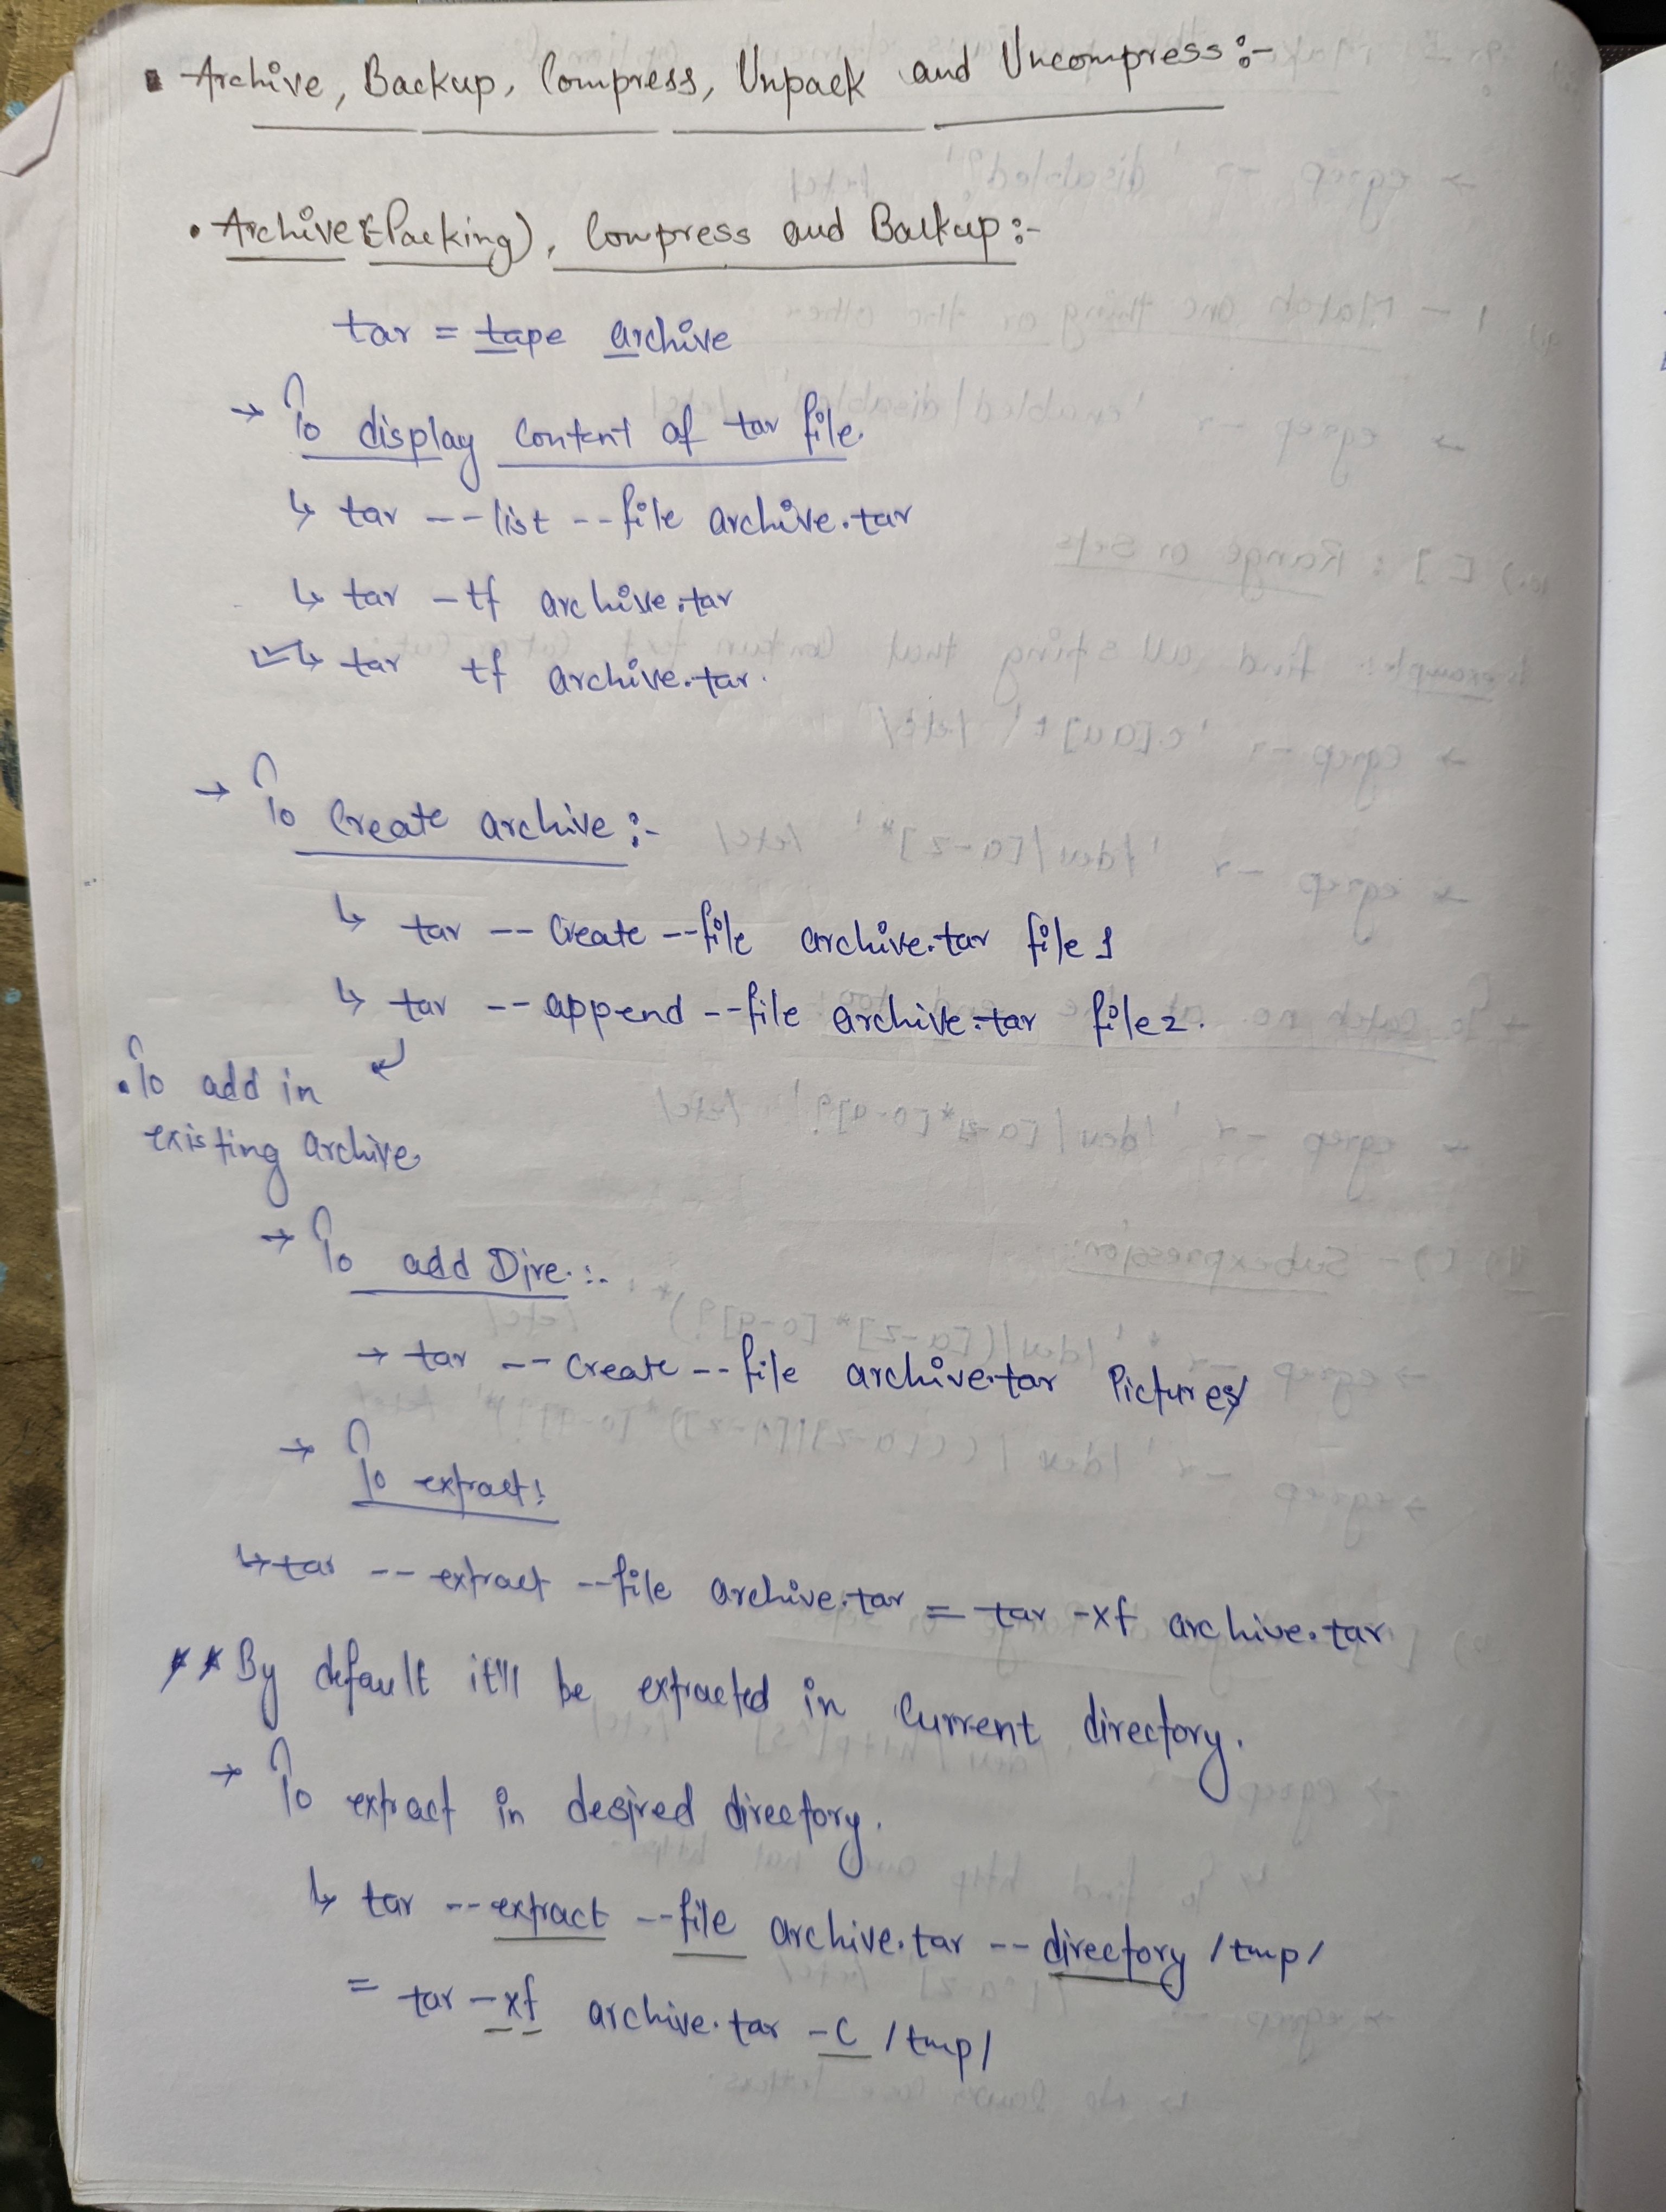 ▪ Archive, Backup, Compress, Unpack and Uncompress:-
• Archive (Packing), Compress and Backup:-
tar = tape archive
→ To display Content of tar file.
↳ tar --list --file archive.tar
↳ tar -tf archive.tar
↳ tar tf archive.tar.
→ To Create archive:-
↳ tar --Create --file archive.tar file1
↳ tar --append --file archive.tar file2.
• To add in
existing archive
→ To add Dire.:-
→ tar --Create --file archive.tar Pictures/
→ To extract:
↳ tar --extract --file archive.tar = tar -xf archive.tar
** By default it'll be extracted in Current directory.
→ To extract in desired directory.
↳ tar --extract --file archive.tar --directory /tmp/
= tar -xf archive.tar -C /tmp/